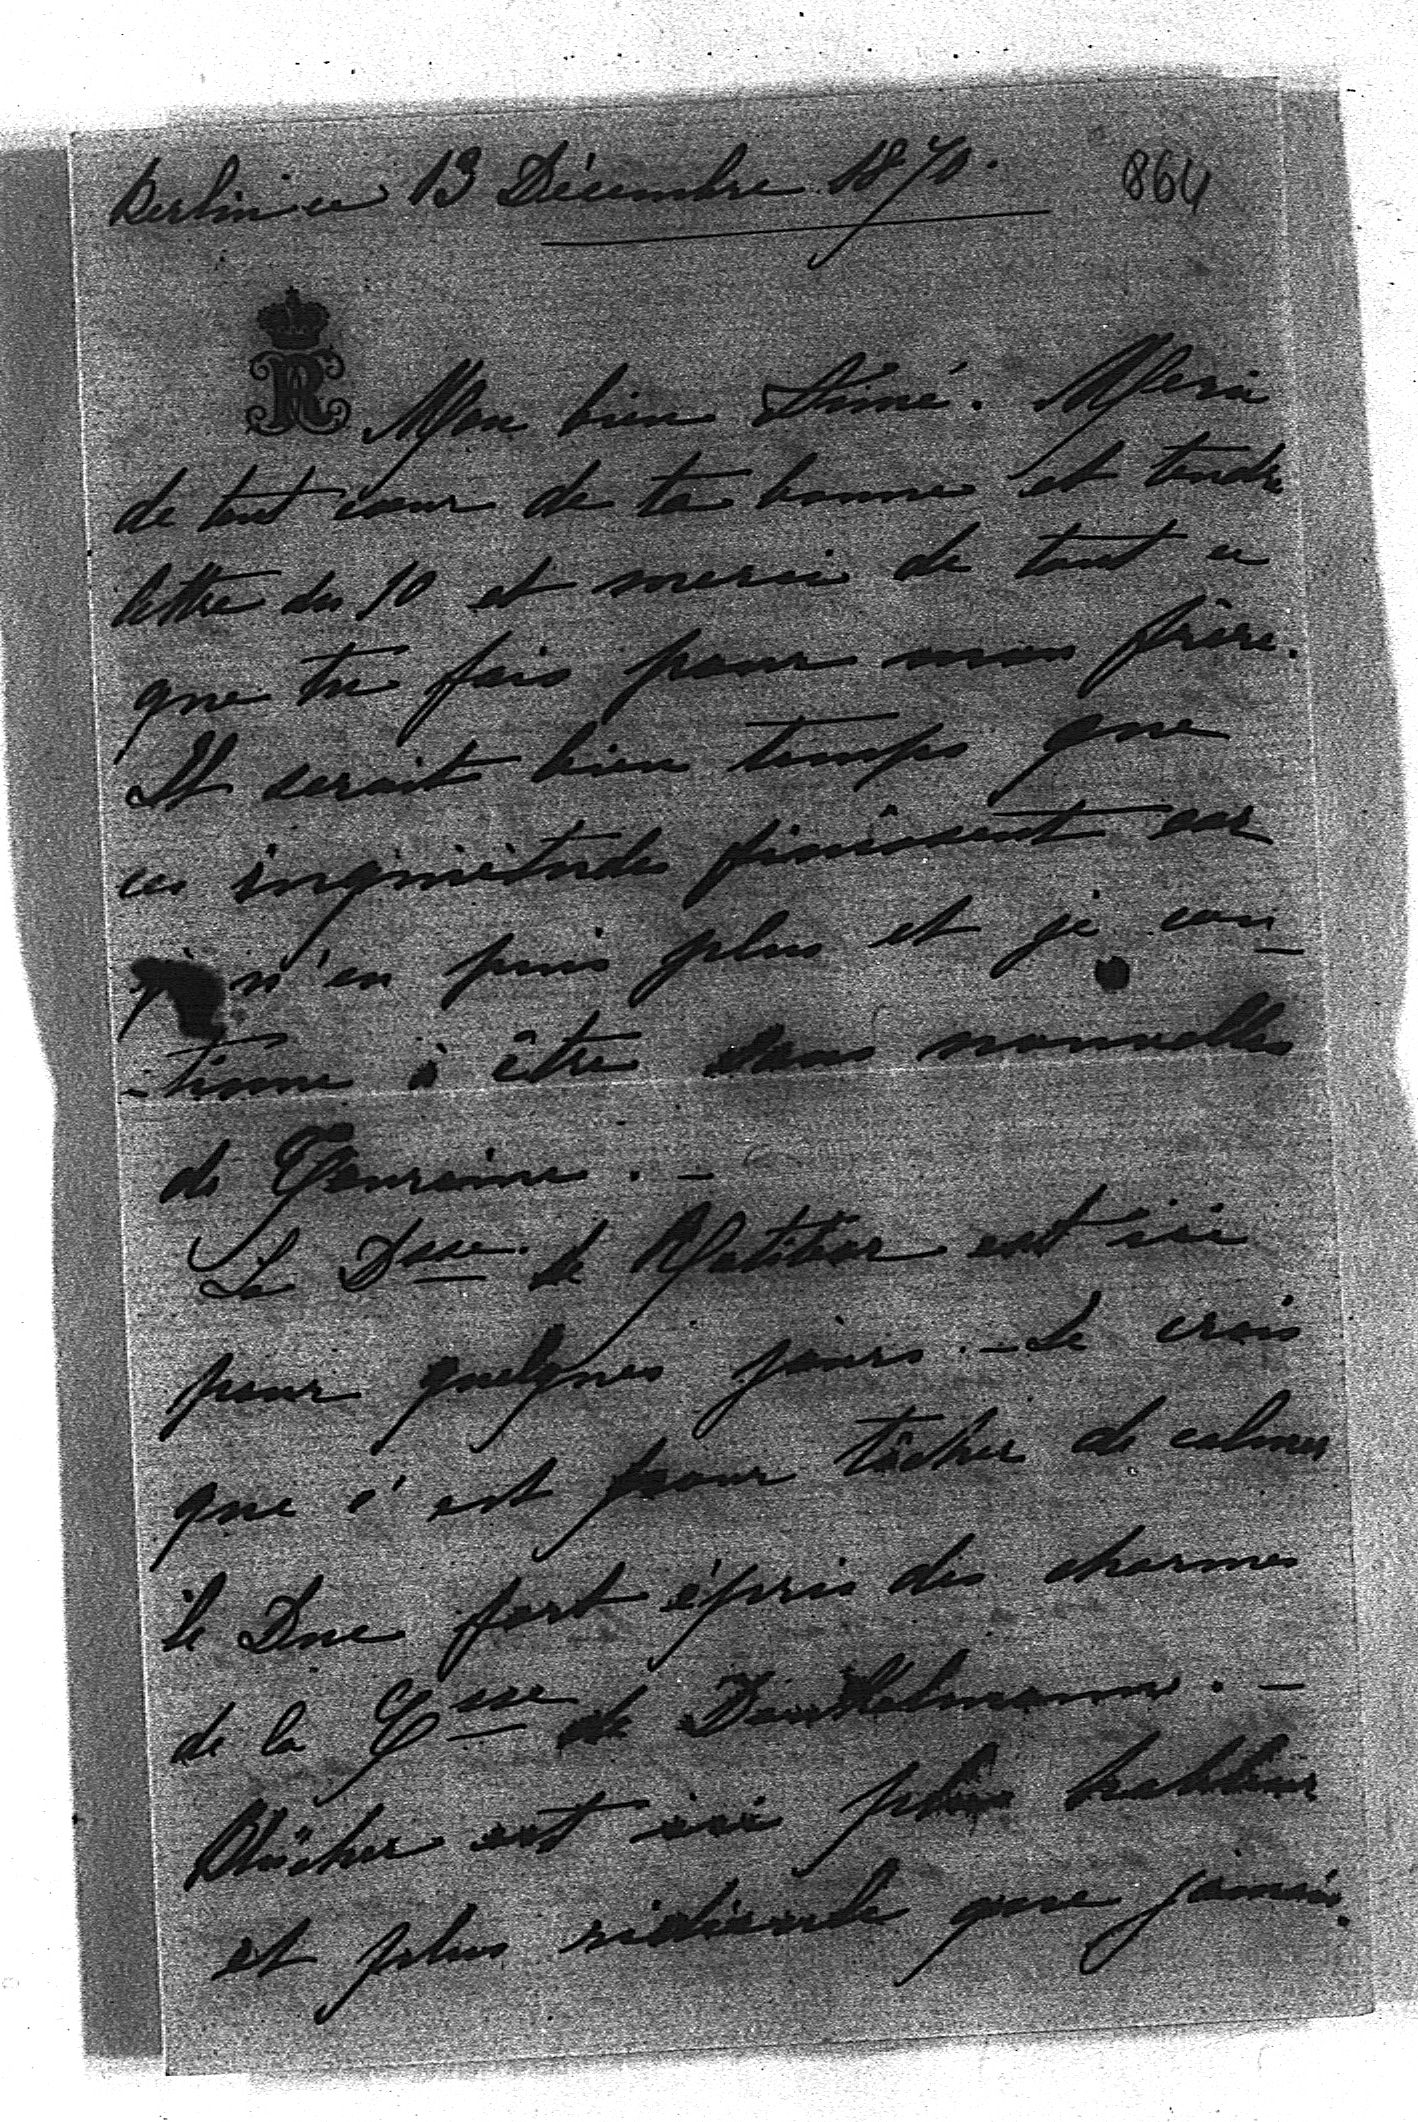 Berlin ce 13 Décembre 1870.
864
R
Mon bien Aimé. Merci
de tout cœur de ta bonne et tendre
lettre du 10 et merci de tout ce
que tu fais pour mon frère.
Il serait bien temps que
ces inquiétudes finissent car
je n'en puis plus et je con-
-tinue à être sans nouvelles
de Touraine. -
La Dsse de Ratibor est ici
pour quelques jours. - Je crois
que c'est pour tâcher de calmer
le Duc fort épris des charmes
de la Csse de
Blücher est ici plus hableur
et plus ridicule que jamais.